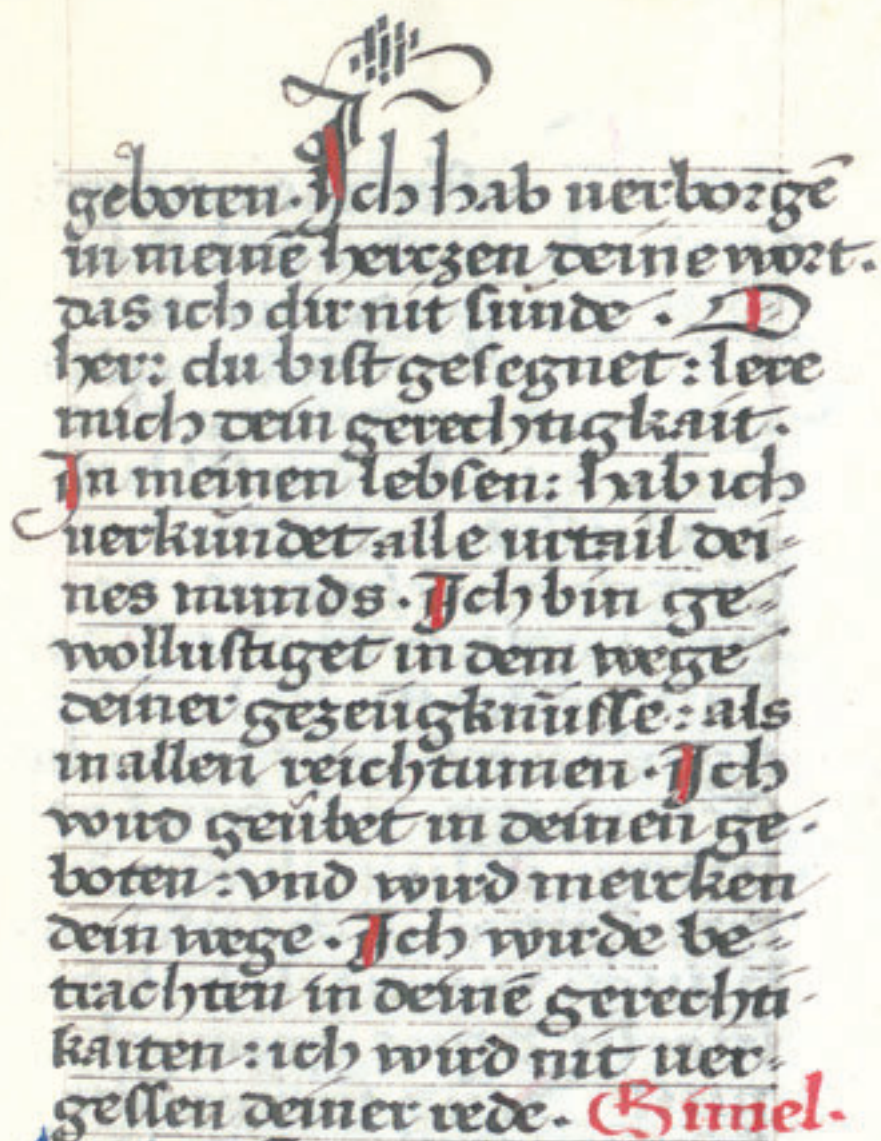 geboten. Ich hab uerborgē
in meinē herczen deine wort.
das ich dir nit sünde. O
her: du bist gesegnet: lere
mich dein gerechtigkait.
In meinen lebsen: hab ich
uerkündet alle urtail dei⸗
nes munds. Ich bin ge⸗
wollustiget in dem wege
deiner gezeügknüsse: als
in allen reichtumen. Ich
wird geübet in deinen ge⸗
boten: vnd wird mercken
dein wege. Ich wirde be⸗
trachten in deinē gerechti⸗
kaiten: ich wird nit uer⸗
gessen deiner rede. Gimel.